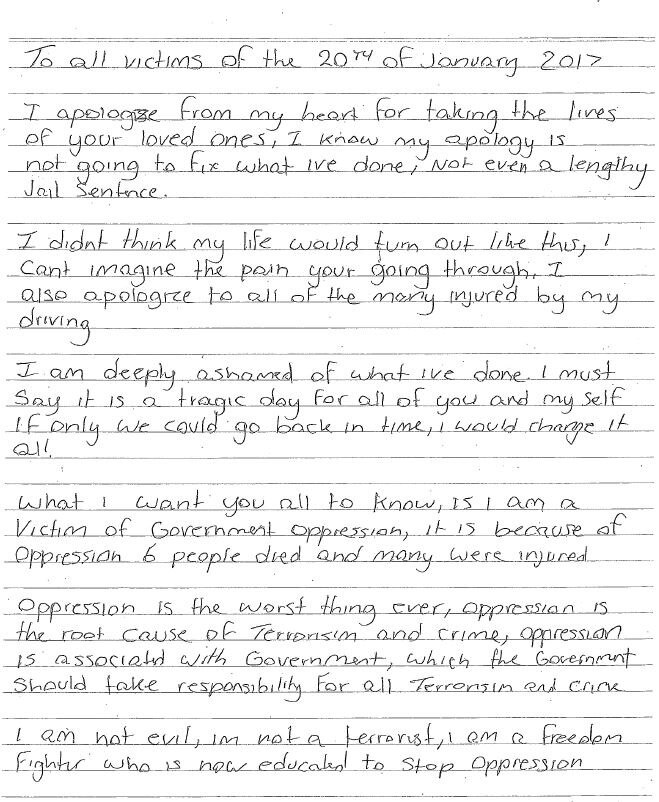 To all victims of the 20th of January 2017
I apologise from my heart for taking the lives
of your loved ones, I know my apology is
not going to fix what ive done, Not even a lengthy
Jail Sentence.
I didnt think my life would turn out like this, I
Cant imagine the pain your going through. I
also apologize to all of the many injured by my
driving
I am deeply ashamed of what ive done. I must
Say it is a tragic day for all of you and my self
If only we could go back in time, i would change it
all.
What I want you all to know, is I am a
Victim of Government oppression, it is because of
Oppression 6 people died and many were injured
Oppression is the worst thing ever, oppression is
the root cause of Terrorisim and crime, oppression
is associated with Government, which the Government
Should take responsibility for all Terrorisim and crime
I am not evil, im not a terrorist, i am a freedom
Fighter who is now educated to stop oppression